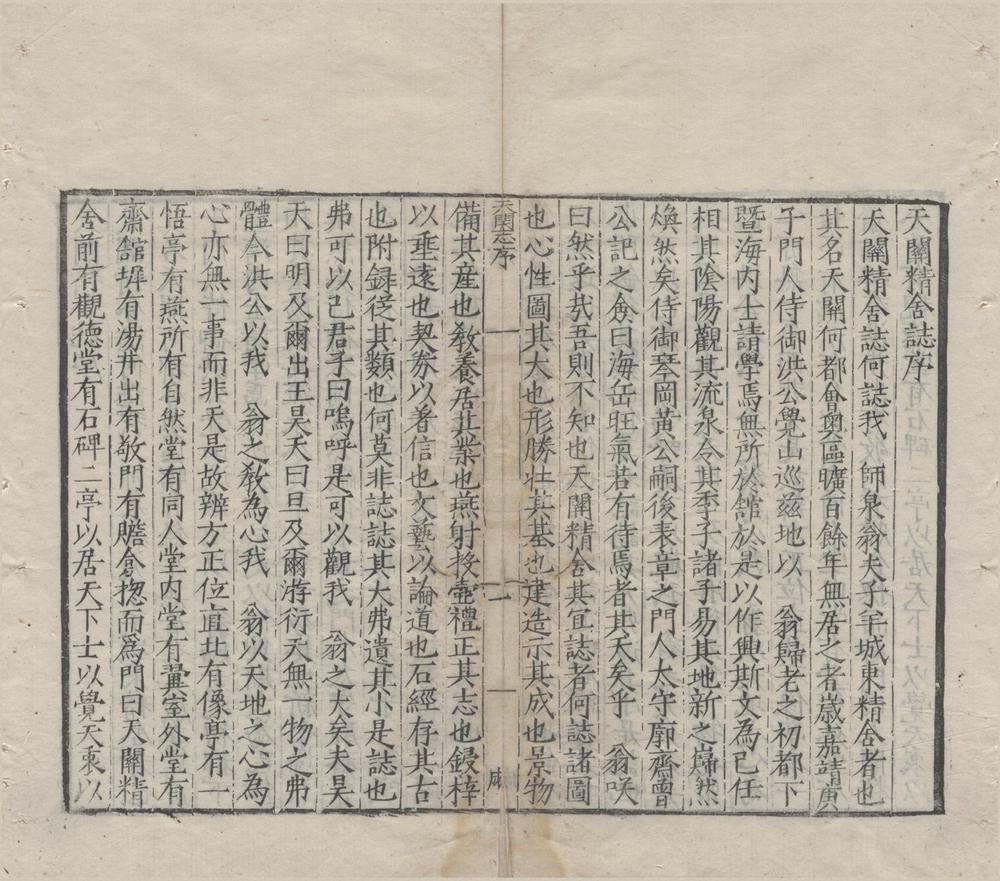 天關精舍誌序
天關精舍誌何誌我　師泉翁夫子羊城東精舍者也
其名天關何都會奧區曠百餘年無居之者歲嘉靖庚
子門人侍御洪公覺山巡茲地以　翁歸老之初都下
暨海内士請學焉無所於舘於是以作興斯文為己任
相其陰陽觀其流泉令其季子諸子易其地新之巋然
煥然矣侍御琴岡黃公嗣後表章之門人太守廓齋曾
公記之僉曰海岳旺氣若有待焉者其天矣乎　翁唉
曰然乎㢤吾則不知也天關精舍其宜誌者何誌諸圖
也心性圖其大也形勝壯其基也建造示其成也景物
天關志序
一
成
備其産也教養居其業也燕射投壺禮正其志也鋟梓
以垂遠也契券以着信也文藝以論道也石經存其古
也附録從其類也何莫非誌誌其大弗遺其小是誌也
弗可以已君子曰嗚呼是可以觀我　翁之大矣夫昊
天曰明及爾出王昊天曰旦及爾游衍天無一物之弗
體今洪公以我　翁之教為心我　翁以天地之心為
心亦無一事而非天是故辨方正位直北有像亭有一
悟亭有燕所有自然堂有同人堂内堂有翼室外堂有
齋舘墀有湯井出有敬門有贍倉揔而爲門曰天關精
舍前有觀德堂有石碑二亭以居天下士以覺天衷以